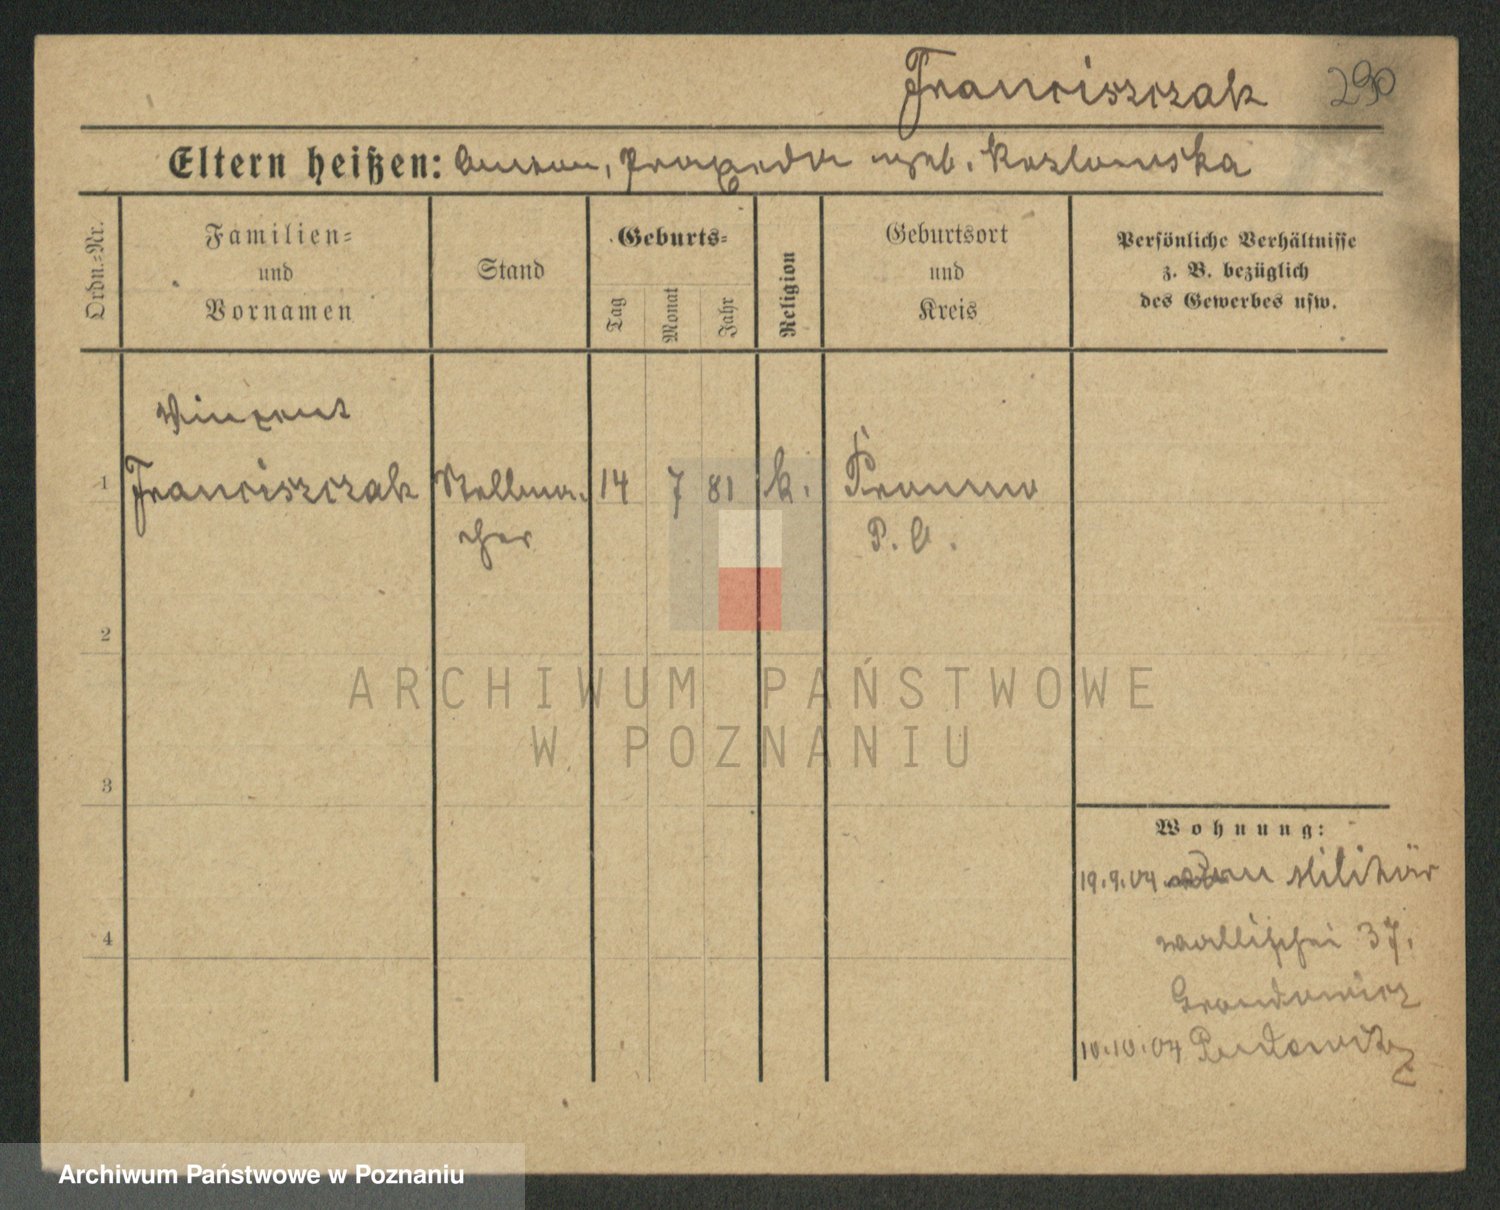 Franciszczak 290
Eltern heißen: Anton, Praxeda geb. Kozlowska
Ordn.-Nr.
Familien-
und
Vornamen
Stand
Geburts-
Tag
Monat
Jahr
Religion
Geburtsort
und
Kreis
Persönliche Verhältnisse
z. B. bezüglich
des Gewerbes usw.
Vinzent
1 Franciszczak Stellma- 14 7 81 k.
cher P. O.
2
ARCHIWUM PAŃSTWOWE
W POZNANIU
3
Wohnung:
19.9.04 Militär
4
Wallischei 37.
10.10.04 Pudewitz
Archiwum Państwowe w Poznaniu